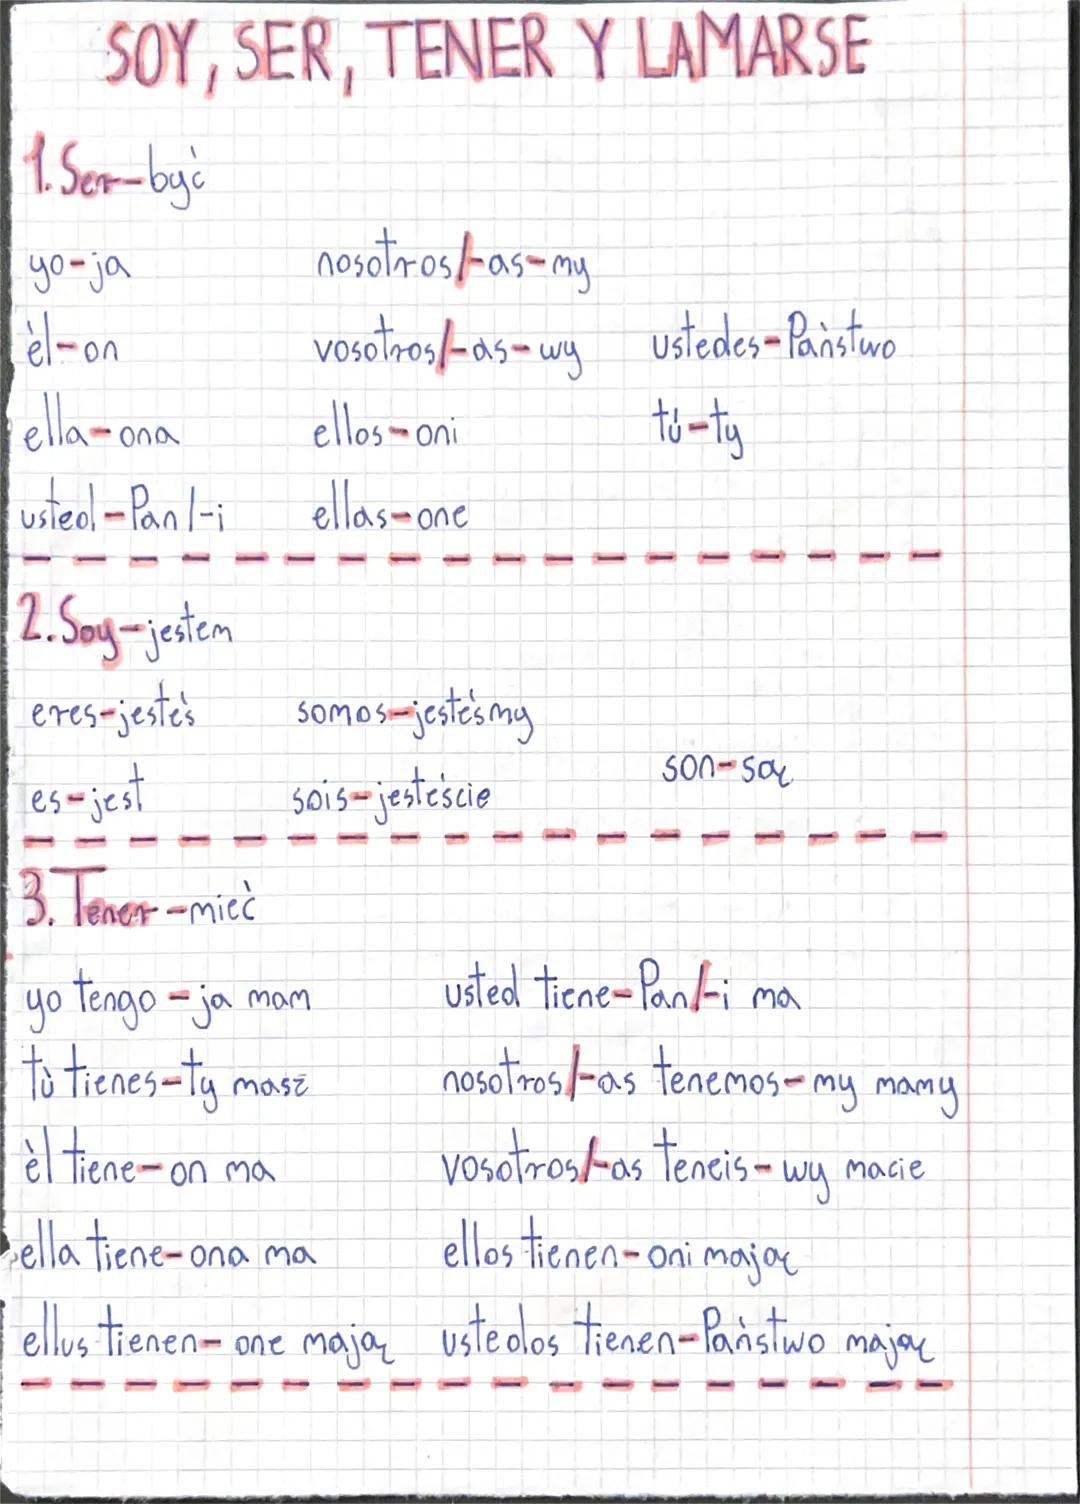 SOY, SER, TENER Y LAMARSE
1. Ser-być
yo-ja nosotros/-as-my
èl-on vosotros/-as-wy ustedes-Państwo
ella-ona ellos-oni tú-ty
usted-Pan/-i ellas-one
2. Soy-jestem
eres-jesteś somos-jesteśmy
son-są
es-jest sois-jesteście
3. Tener-mieć
yo tengo-ja mam usted tiene-Pan/-i ma
tù tienes-ty masz nosotros/-as tenemos-my mamy
èl tiene-on ma vosotros/-as teneis-wy macie
ella tiene-ona ma ellos tienen-oni mają
ellus tienen-one mają ustedos tienen-Państwo mają